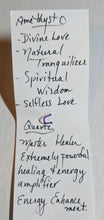 Amethyst
-Divine Love
-Natural
Tranquilizer
-Spiritual
Wisdom
-Selfless Love
Quartz
Master Healer
Extremely powerful
healing & energy
amplifier
Energy Enhance
ment.